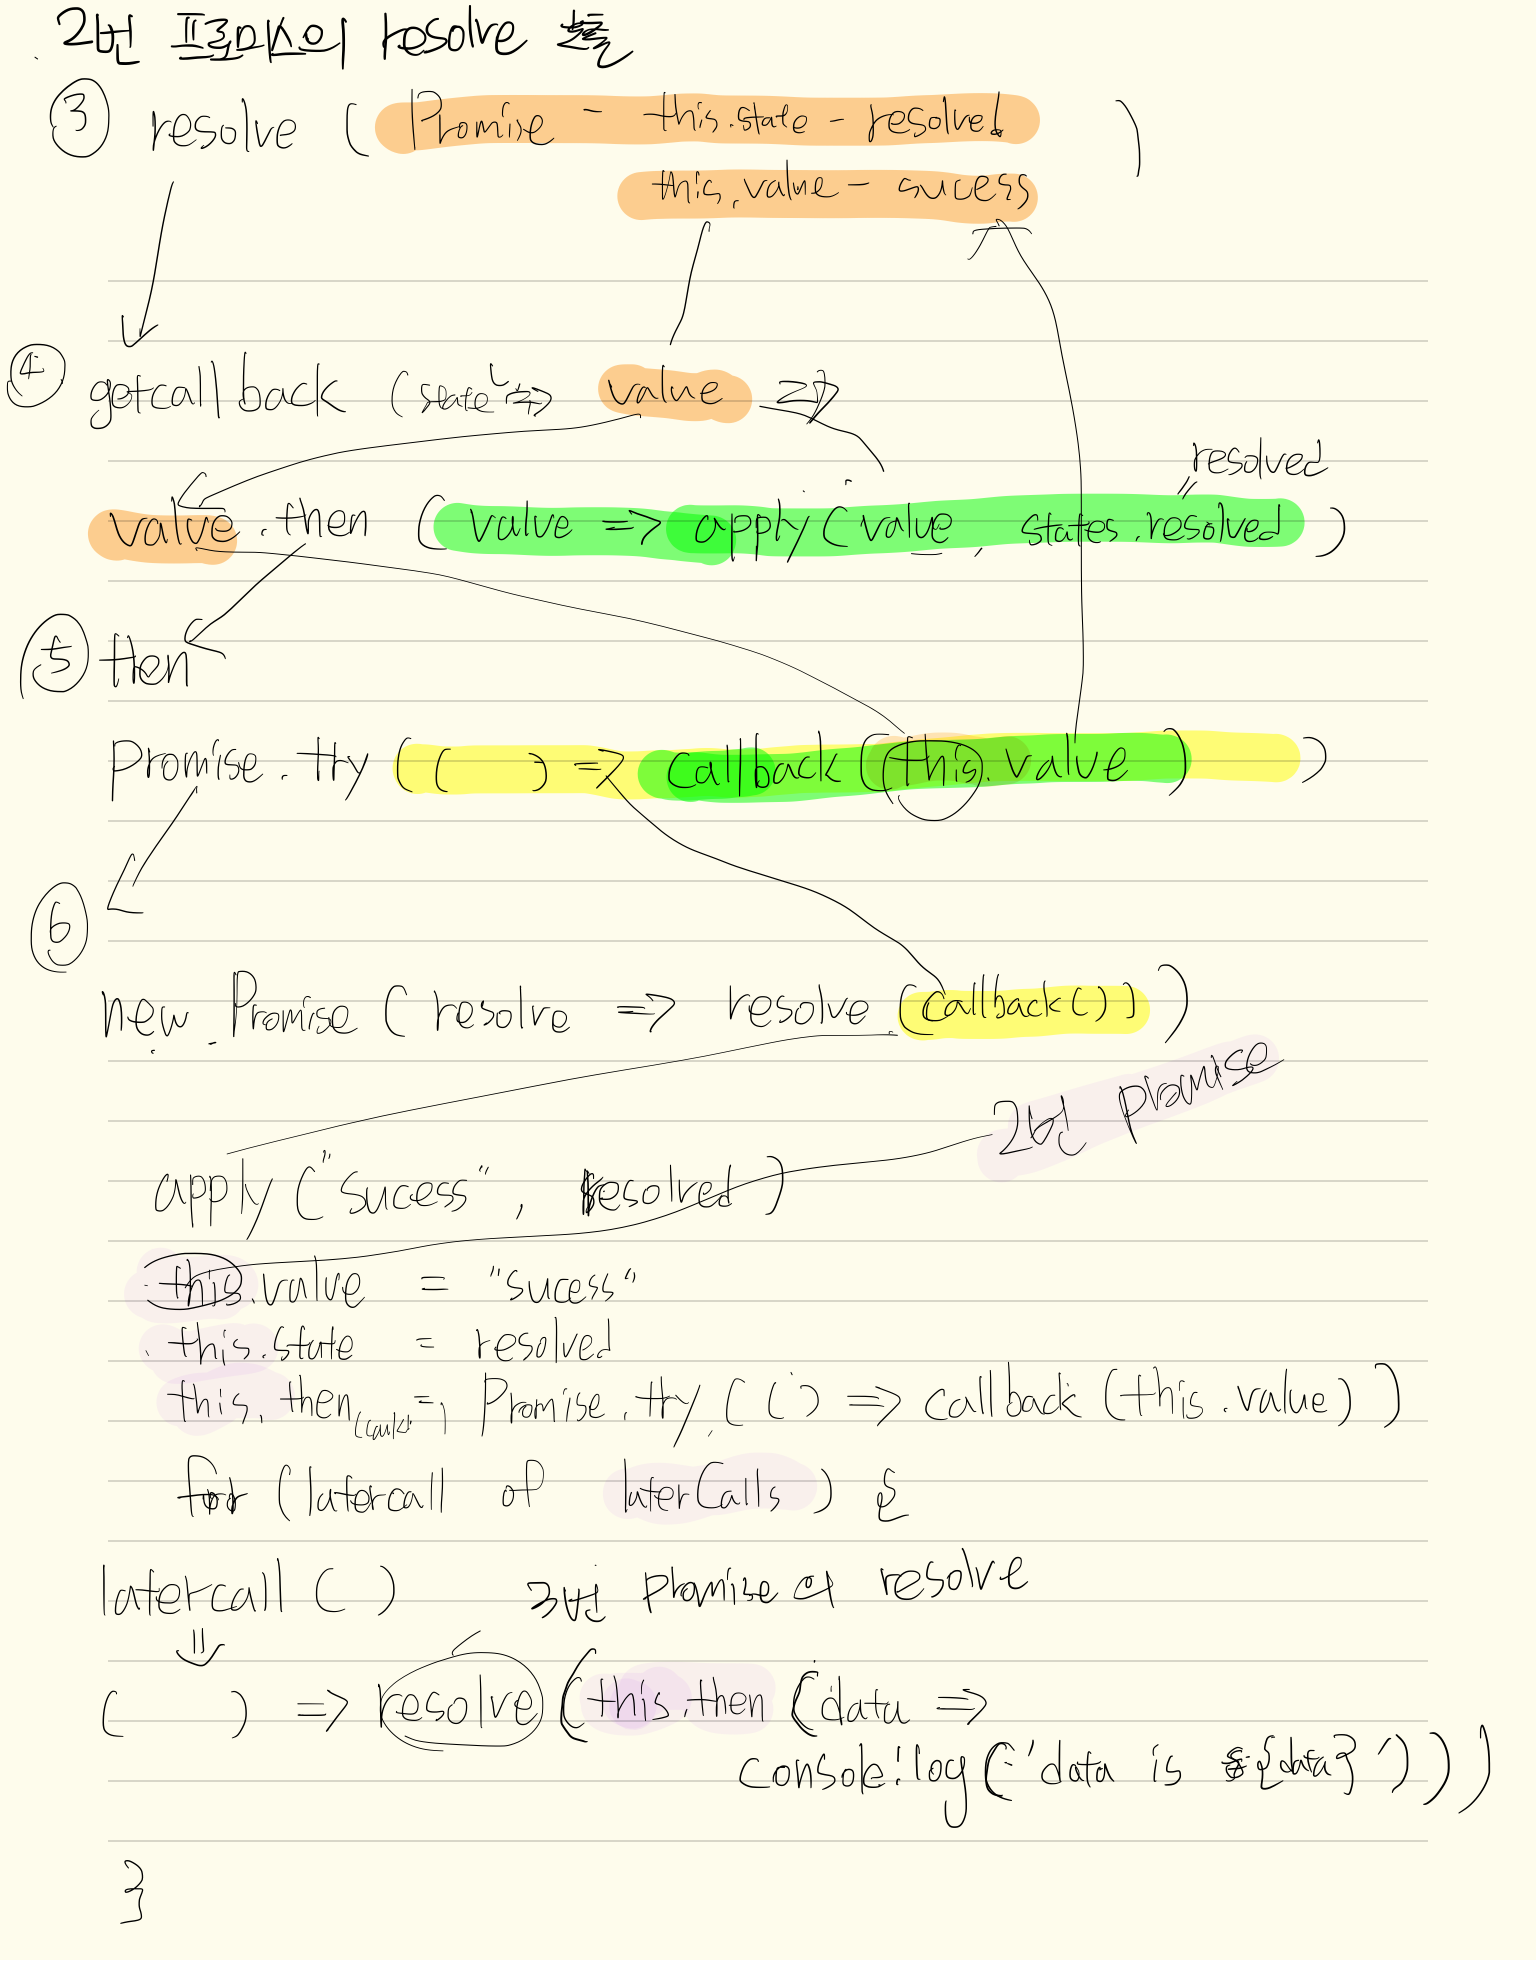 2번 프로미스의 resolve 호출
③ resolve ( Promise - this.state - resolved )
this.value - sucess
④ getcallback (state => value =>
resolved
value.then (value => apply(value, states.resolved )
⑤ then
Promise.try (( ) => callback(this.value) )
⑥
new Promise ( resolve => resolve (callback()) )
2번 promise
apply ("sucess", resolved )
this.value = "sucess"
this.state = resolved
this.then = Promise.try (() => callback (this.value) )
for (latercall of laterCalls ) {
latercall ( ) 3번 promise의 resolve
( ) => resolve (this.then (data =>
console.log('data is ${data}')))
}